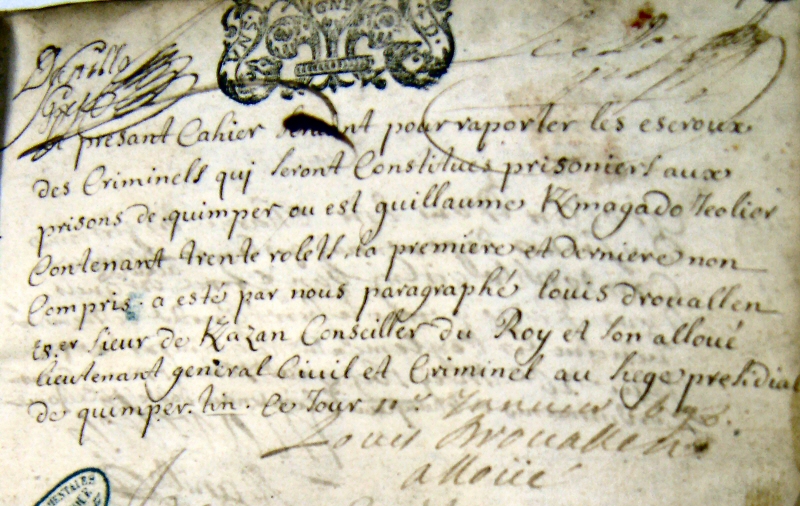 Le presant Cahier servant pour raporter les escroux
des Criminels qui seront Constitues prisoniers aux
prisons de quimper ou est guillaume Kmagado Jeolier
Contenant trente rolets la premiere et derniere non
Compris a esté par nous paragraphé louis drouallen
Es.er sieur de Kazan Conseiller du Roy et son alloué
lieutenant general Civil et Criminel au siege presidial
de quimper. Ce Jour Janvier
Louis Drouallen
alloüé